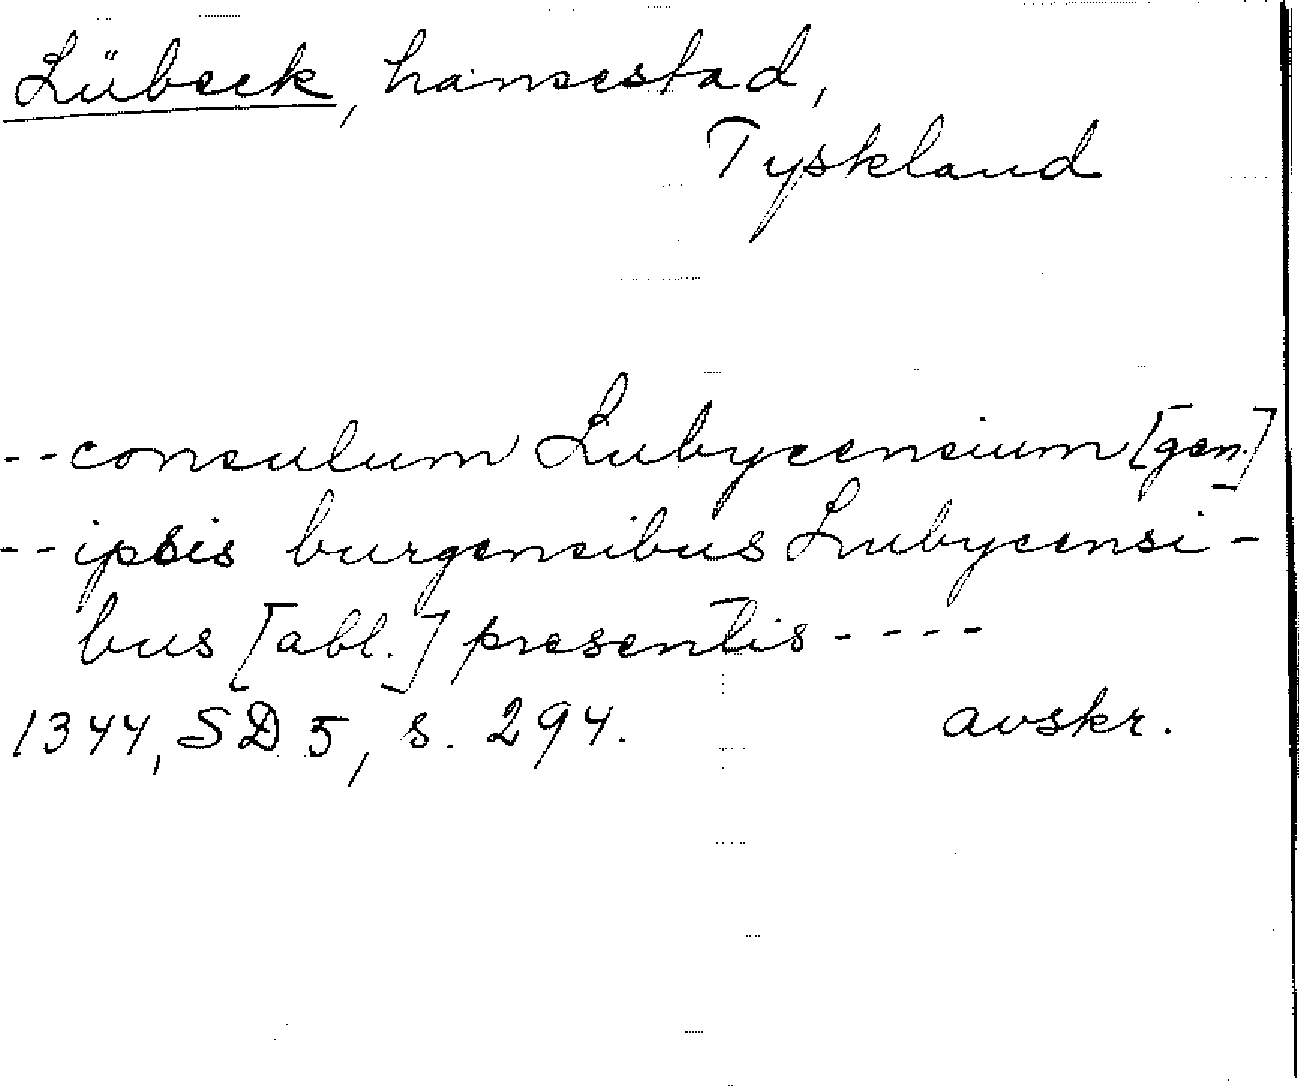 Lübeck, hansestad,
Tyskland
--consulum Lubycensium [gen.]
--ipsis burgensibus Lubycensi-
bus [abl.] presentis----
1344, SD 5, s. 294. avskr.